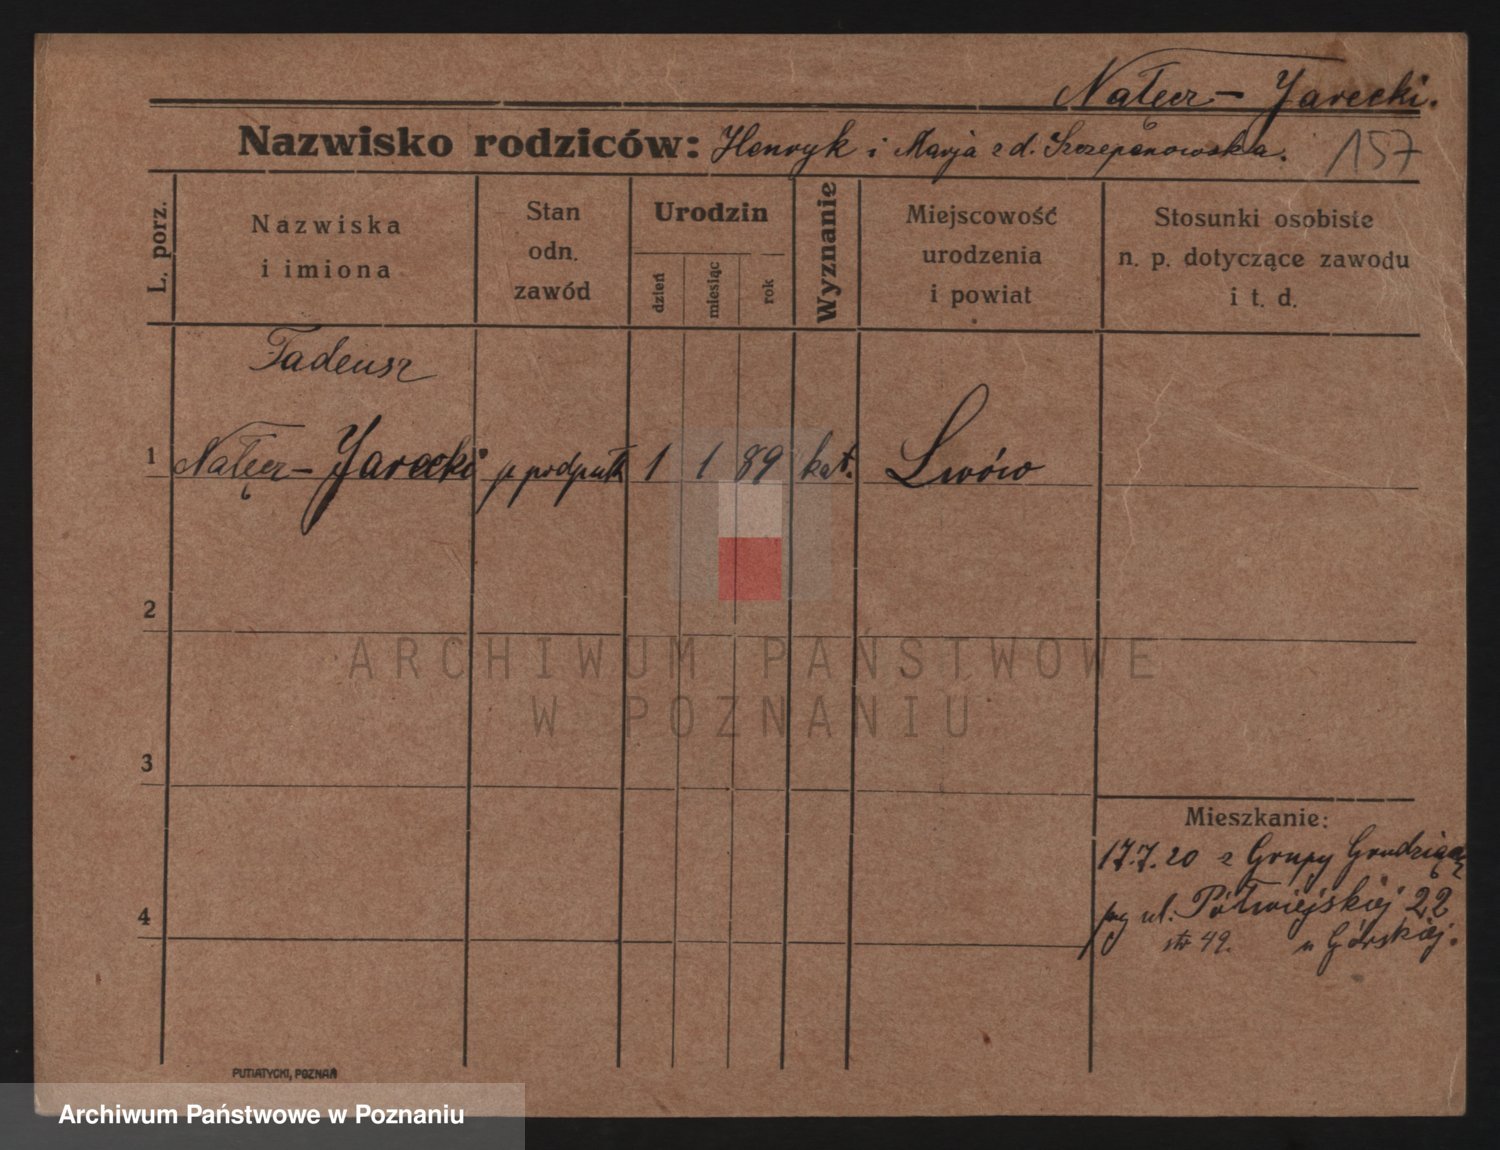 Nałęcz – Jarecki.
Nazwisko rodziców: Henryk i Marja z d. Szczepanowska. 157
L. porz.
Nazwiska
i imiona
Stan
odn.
zawód
Urodzin
dzień
miesiąc
rok
Wyznanie
Miejscowość
urodzenia
i powiat
Stosunki osobiste
n. p. dotyczące zawodu
i t. d.
Tadeusz
1 Nałęcz – Jarecki 1 1 89 kat. Lwów
2
3
4
Mieszkanie:
17.7.20 z Grupy Grudziądz
ul. Półwiejskiej 22
str 49. u Górskiej.
PUTIATYCKI, POZNAŃ
ARCHIWUM PAŃSTWOWE
W POZNANIU
Archiwum Państwowe w Poznaniu